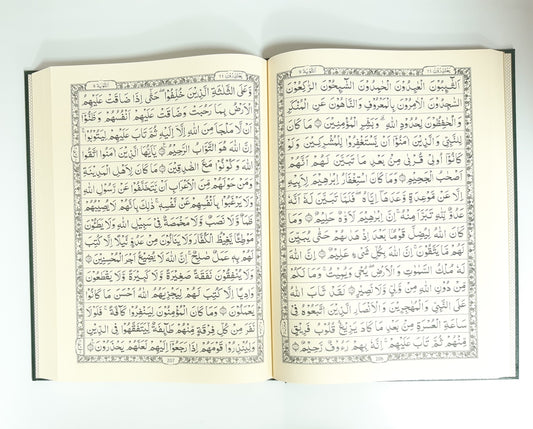 يَعْتَذِرُوْنَ ١١
اَلتَّوْبَة ٩
اَلتَّآئِبُوْنَ الْعٰبِدُوْنَ الْحٰمِدُوْنَ السَّآئِحُوْنَ الرّٰكِعُوْنَ
السّٰجِدُوْنَ الْاٰمِرُوْنَ بِالْمَعْرُوْفِ وَالنَّاهُوْنَ عَنِ الْمُنْكَرِ
وَالْحٰفِظُوْنَ لِحُدُوْدِ اللّٰهِ ؕ وَبَشِّرِ الْمُؤْمِنِيْنَ ۝ مَا كَانَ
لِلنَّبِيِّ وَالَّذِيْنَ اٰمَنُوْۤا اَنْ يَّسْتَغْفِرُوْا لِلْمُشْرِكِيْنَ وَلَوْ
كَانُوْۤا اُولِيْ قُرْبٰى مِنْۢ بَعْدِ مَا تَبَيَّنَ لَهُمْ اَنَّهُمْ
اَصْحٰبُ الْجَحِيْمِ ۝ وَمَا كَانَ اسْتِغْفَارُ اِبْرٰهِيْمَ لِاَبِيْهِ
اِلَّا عَنْ مَّوْعِدَةٍ وَّعَدَهَاۤ اِيَّاهُ ۚ فَلَمَّا تَبَيَّنَ لَهٗۤ اَنَّهٗ
عَدُوٌّ لِّلّٰهِ تَبَرَّاَ مِنْهُ ؕ اِنَّ اِبْرٰهِيْمَ لَاَوَّاهٌ حَلِيْمٌ ۝ وَمَا
كَانَ اللّٰهُ لِيُضِلَّ قَوْمًۢا بَعْدَ اِذْ هَدٰىهُمْ حَتّٰى يُبَيِّنَ
لَهُمْ مَّا يَتَّقُوْنَ ؕ اِنَّ اللّٰهَ بِكُلِّ شَيْءٍ عَلِيْمٌ ۝ اِنَّ اللّٰهَ
لَهٗ مُلْكُ السَّمٰوٰتِ وَالْاَرْضِ ؕ يُحْيٖ وَيُمِيْتُ ؕ وَمَا لَكُمْ
مِّنْ دُوْنِ اللّٰهِ مِنْ وَّلِيٍّ وَّلَا نَصِيْرٍ ۝ لَقَدْ تَّابَ اللّٰهُ
عَلَى النَّبِيِّ وَالْمُهٰجِرِيْنَ وَالْاَنْصَارِ الَّذِيْنَ اتَّبَعُوْهُ فِيْ
سَاعَةِ الْعُسْرَةِ مِنْۢ بَعْدِ مَا كَادَ يَزِيْغُ قُلُوْبُ فَرِيْقٍ
مِّنْهُمْ ثُمَّ تَابَ عَلَيْهِمْ ؕ اِنَّهٗ بِهِمْ رَءُوْفٌ رَّحِيْمٌ ۝
يَعْتَذِرُوْنَ ١١
اَلتَّوْبَة ٩
وَّعَلَى الثَّلٰثَةِ الَّذِيْنَ خُلِّفُوْا ؕ حَتّٰۤى اِذَا ضَاقَتْ عَلَيْهِمُ
الْاَرْضُ بِمَا رَحُبَتْ وَضَاقَتْ عَلَيْهِمْ اَنْفُسُهُمْ وَظَنُّوْۤا
اَنْ لَّا مَلْجَاَ مِنَ اللّٰهِ اِلَّاۤ اِلَيْهِ ؕ ثُمَّ تَابَ عَلَيْهِمْ لِيَتُوْبُوْا ؕ
اِنَّ اللّٰهَ هُوَ التَّوَّابُ الرَّحِيْمُ ۝ يٰۤاَيُّهَا الَّذِيْنَ اٰمَنُوا اتَّقُوا
اللّٰهَ وَكُوْنُوْا مَعَ الصّٰدِقِيْنَ ۝ مَا كَانَ لِاَهْلِ الْمَدِيْنَةِ
وَمَنْ حَوْلَهُمْ مِّنَ الْاَعْرَابِ اَنْ يَّتَخَلَّفُوْا عَنْ رَّسُوْلِ اللّٰهِ
وَلَا يَرْغَبُوْا بِاَنْفُسِهِمْ عَنْ نَّفْسِهٖ ؕ ذٰلِكَ بِاَنَّهُمْ لَا يُصِيْبُهُمْ
ظَمَاٌ وَّلَا نَصَبٌ وَّلَا مَخْمَصَةٌ فِيْ سَبِيْلِ اللّٰهِ وَلَا يَطَـُٔوْنَ
مَوْطِئًا يَّغِيْظُ الْكُفَّارَ وَلَا يَنَالُوْنَ مِنْ عَدُوٍّ نَّيْلًا اِلَّا كُتِبَ
لَهُمْ بِهٖ عَمَلٌ صَالِحٌ ؕ اِنَّ اللّٰهَ لَا يُضِيْعُ اَجْرَ الْمُحْسِنِيْنَ ۝
وَلَا يُنْفِقُوْنَ نَفَقَةً صَغِيْرَةً وَّلَا كَبِيْرَةً وَّلَا يَقْطَعُوْنَ
وَادِيًا اِلَّا كُتِبَ لَهُمْ لِيَجْزِيَهُمُ اللّٰهُ اَحْسَنَ مَا كَانُوْا
يَعْمَلُوْنَ ۝ وَمَا كَانَ الْمُؤْمِنُوْنَ لِيَنْفِرُوْا كَآفَّةً ؕ فَلَوْلَا
نَفَرَ مِنْ كُلِّ فِرْقَةٍ مِّنْهُمْ طَآئِفَةٌ لِّيَتَفَقَّهُوْا فِي الدِّيْنِ
وَلِيُنْذِرُوْا قَوْمَهُمْ اِذَا رَجَعُوْۤا اِلَيْهِمْ لَعَلَّهُمْ يَحْذَرُوْنَ ۝